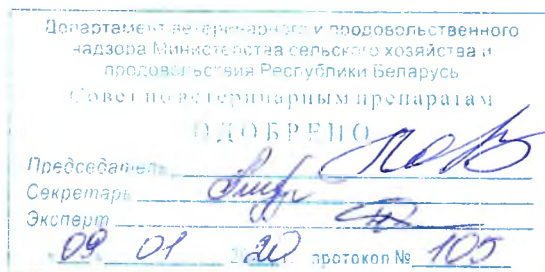 Департамент ветеринарного и продовольственного
надзора Министерства сельского хозяйства и
продовольствия Республики Беларусь
Совет по ветеринарным препаратам
ОДОБРЕНО
Председатель
Секретарь
Эксперт
09 01 20 протокол № 105